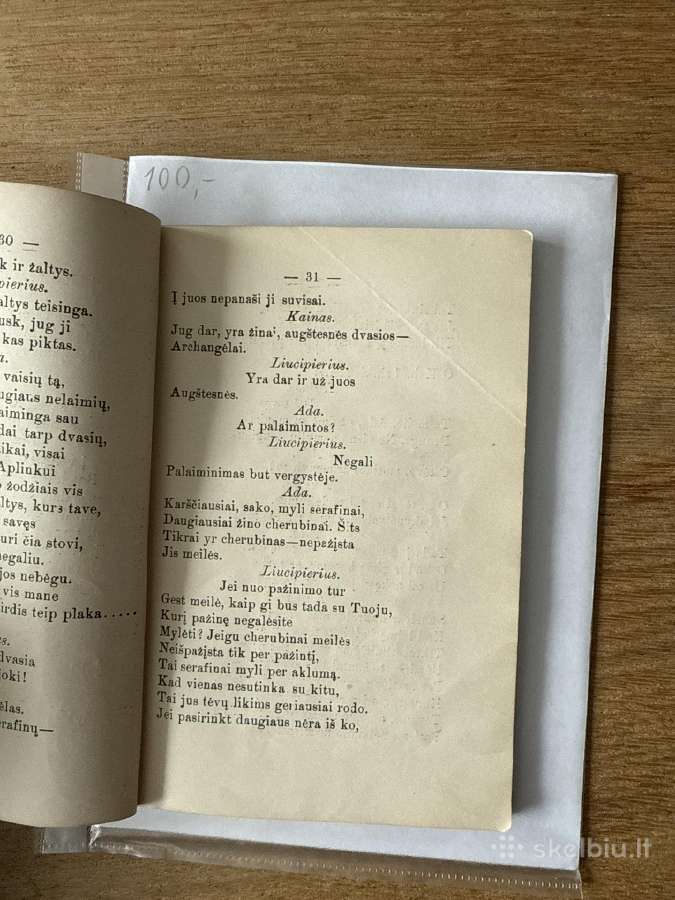 100,-
30 —
k ir žaltys.
pierius.
altys teisinga.
usk, jug ji
kas piktas.
a.
vaisių tą,
ugiaus nelaimių,
aiminga sau
dai tarp dvasių,
tikai, visai
Aplinkui
žodžiais vis
altys, kurs tave,
savęs
uri čia stovi,
negaliu.
jos nebėgu.
vis mane
irdis teip plaka.....
s.
dvasia
joki!
ėlas.
erafinų—
— 31 —
Į juos nepanaši ji suvisai.
Kainas.
Jug dar, yra žina', augštesnės dvasios—
Archangėlai.
Liucipierius.
Yra dar ir už juos
Augštesnės.
Ada.
Ar palaimintos?
Liucipierius.
Negali
Palaiminimas but vergystėje.
Ada.
Karščiausiai, sako, myli serafinai,
Daugiausiai žino cherubinai. Š'ts
Tikrai yr cherubinas—nepažįsta
Jis meilės.
Liucipierius.
Jei nuo pažinimo tur
Gest meilė, kaip gi bus tada su Tuoju,
Kurį pažinę negalėsite
Mylėti? Jeigu cherubinai meilės
Neišpažįsta tik per pažintį,
Tai serafinai myli per aklumą.
Kad vienas nesutinka su kitu,
Tai jus tėvų likims geriausiai rodo.
Jei pasirinkt daugiaus nėra iš ko,
skelbiu.lt